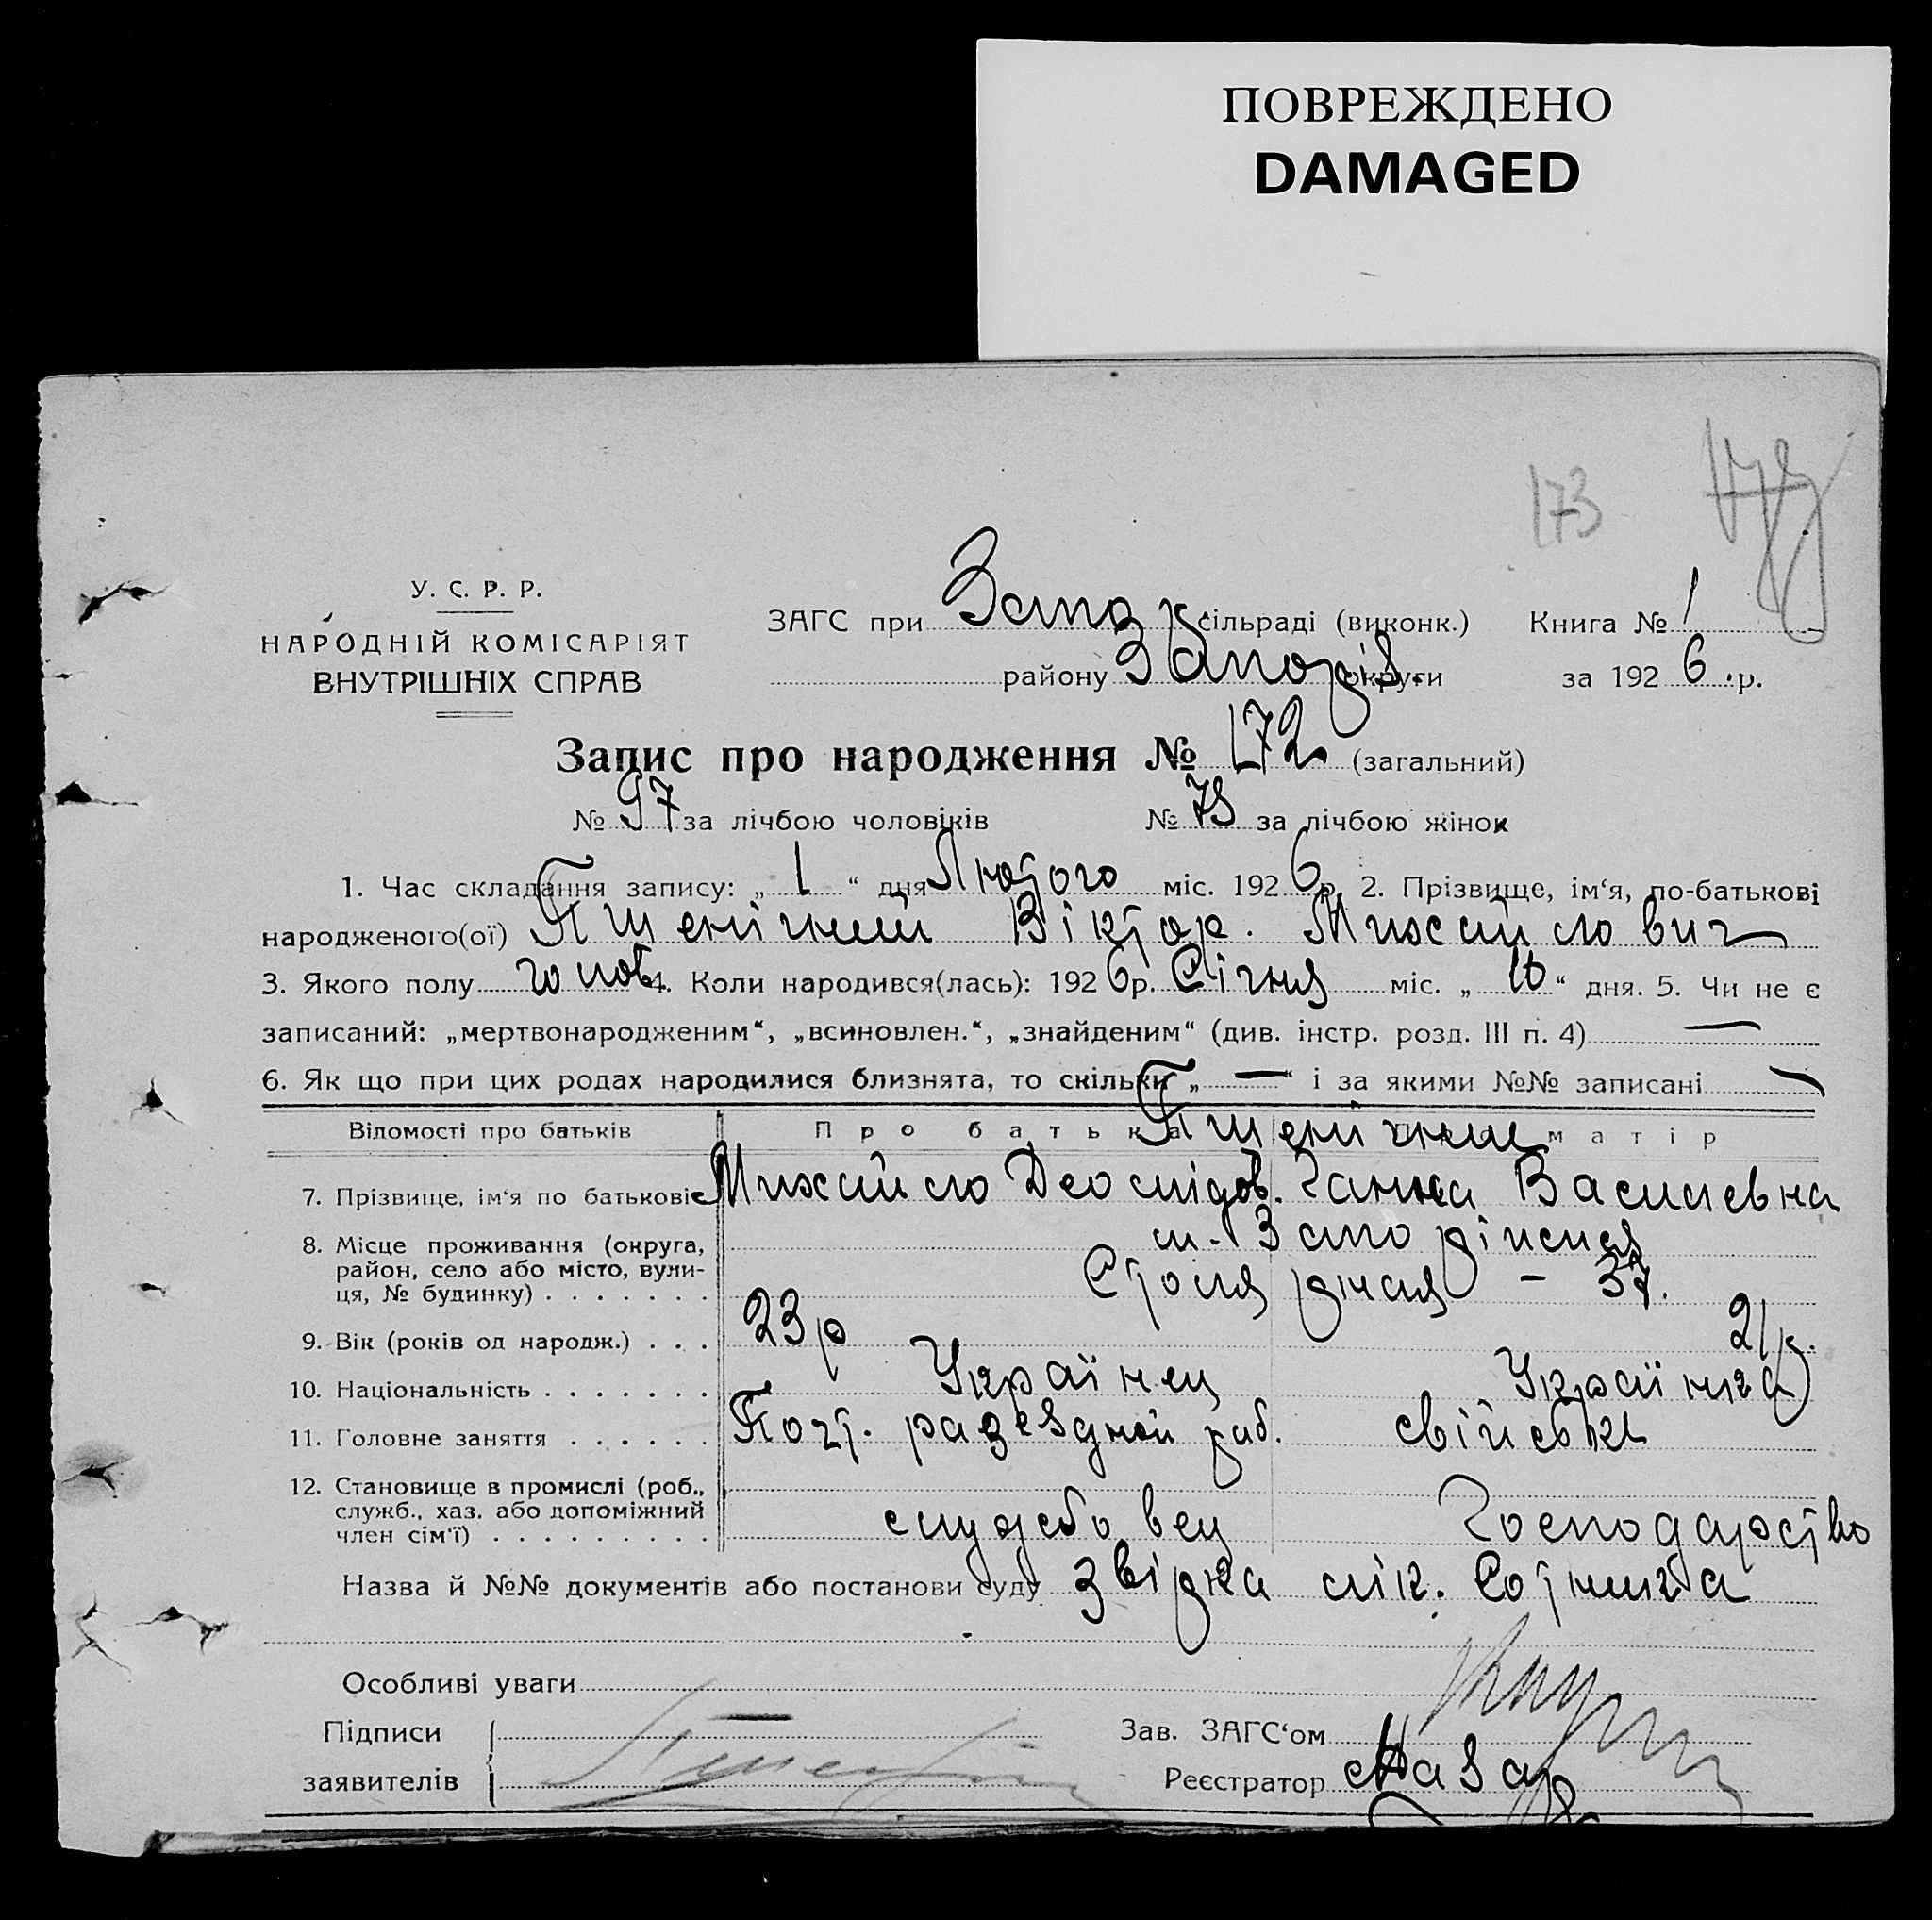 ПОВРЕЖДЕНО
DAMAGED
173
У. С. Р. Р.
НАРОДНІЙ КОМІСАРІЯТ
ВНУТРІШНІХ СПРАВ
ЗАГС при Запоз сільраді (виконк.) Книга № 1
району Запоріз. округи за 1926 р.
Запис про народження № 172 (загальний)
№ 97 за лічбою чоловіків № 75 за лічбою жінок
1. Час складання запису: „ 1 “ дня Лютого міс. 1926 р. 2. Прізвище, ім‘я, по-батькові
народженого(ої) Пшенічний Віктор. Михайлович
3. Якого полу чолов. 4. Коли народився(лась): 1926 р. Січня міс. „ 10 “ дня. 5. Чи не є
записаний: „мертвонародженим“, „всиновлен.“, „знайденим“ (див. інстр. розд. III п. 4) —
6. Як що при цих родах народилися близнята, то скільки „ — “ і за якими №№ записані —
Відомості про батьків Про батька матір
Пшенічние
7. Прізвище, ім‘я по батькові Михайло Деомідов. Ганна Василевна
8. Місце проживання (округа, район, село або місто, вулиця, № будинку) м. Запоріжжя
37.
9. Вік (років од народж.) 23р 21р.
10. Національність Українец Українка
11. Головне заняття Почт. разездной раб. свійське
12. Становище в промислі (роб., служб., хаз. або допоміжний член сім‘ї) службовец Господарство
Назва й №№ документів або постанови суду Звідка лік. Сотника
Особливі уваги
Підписи
заявителів
Зав. ЗАГС‘ом
Реєстратор Назар